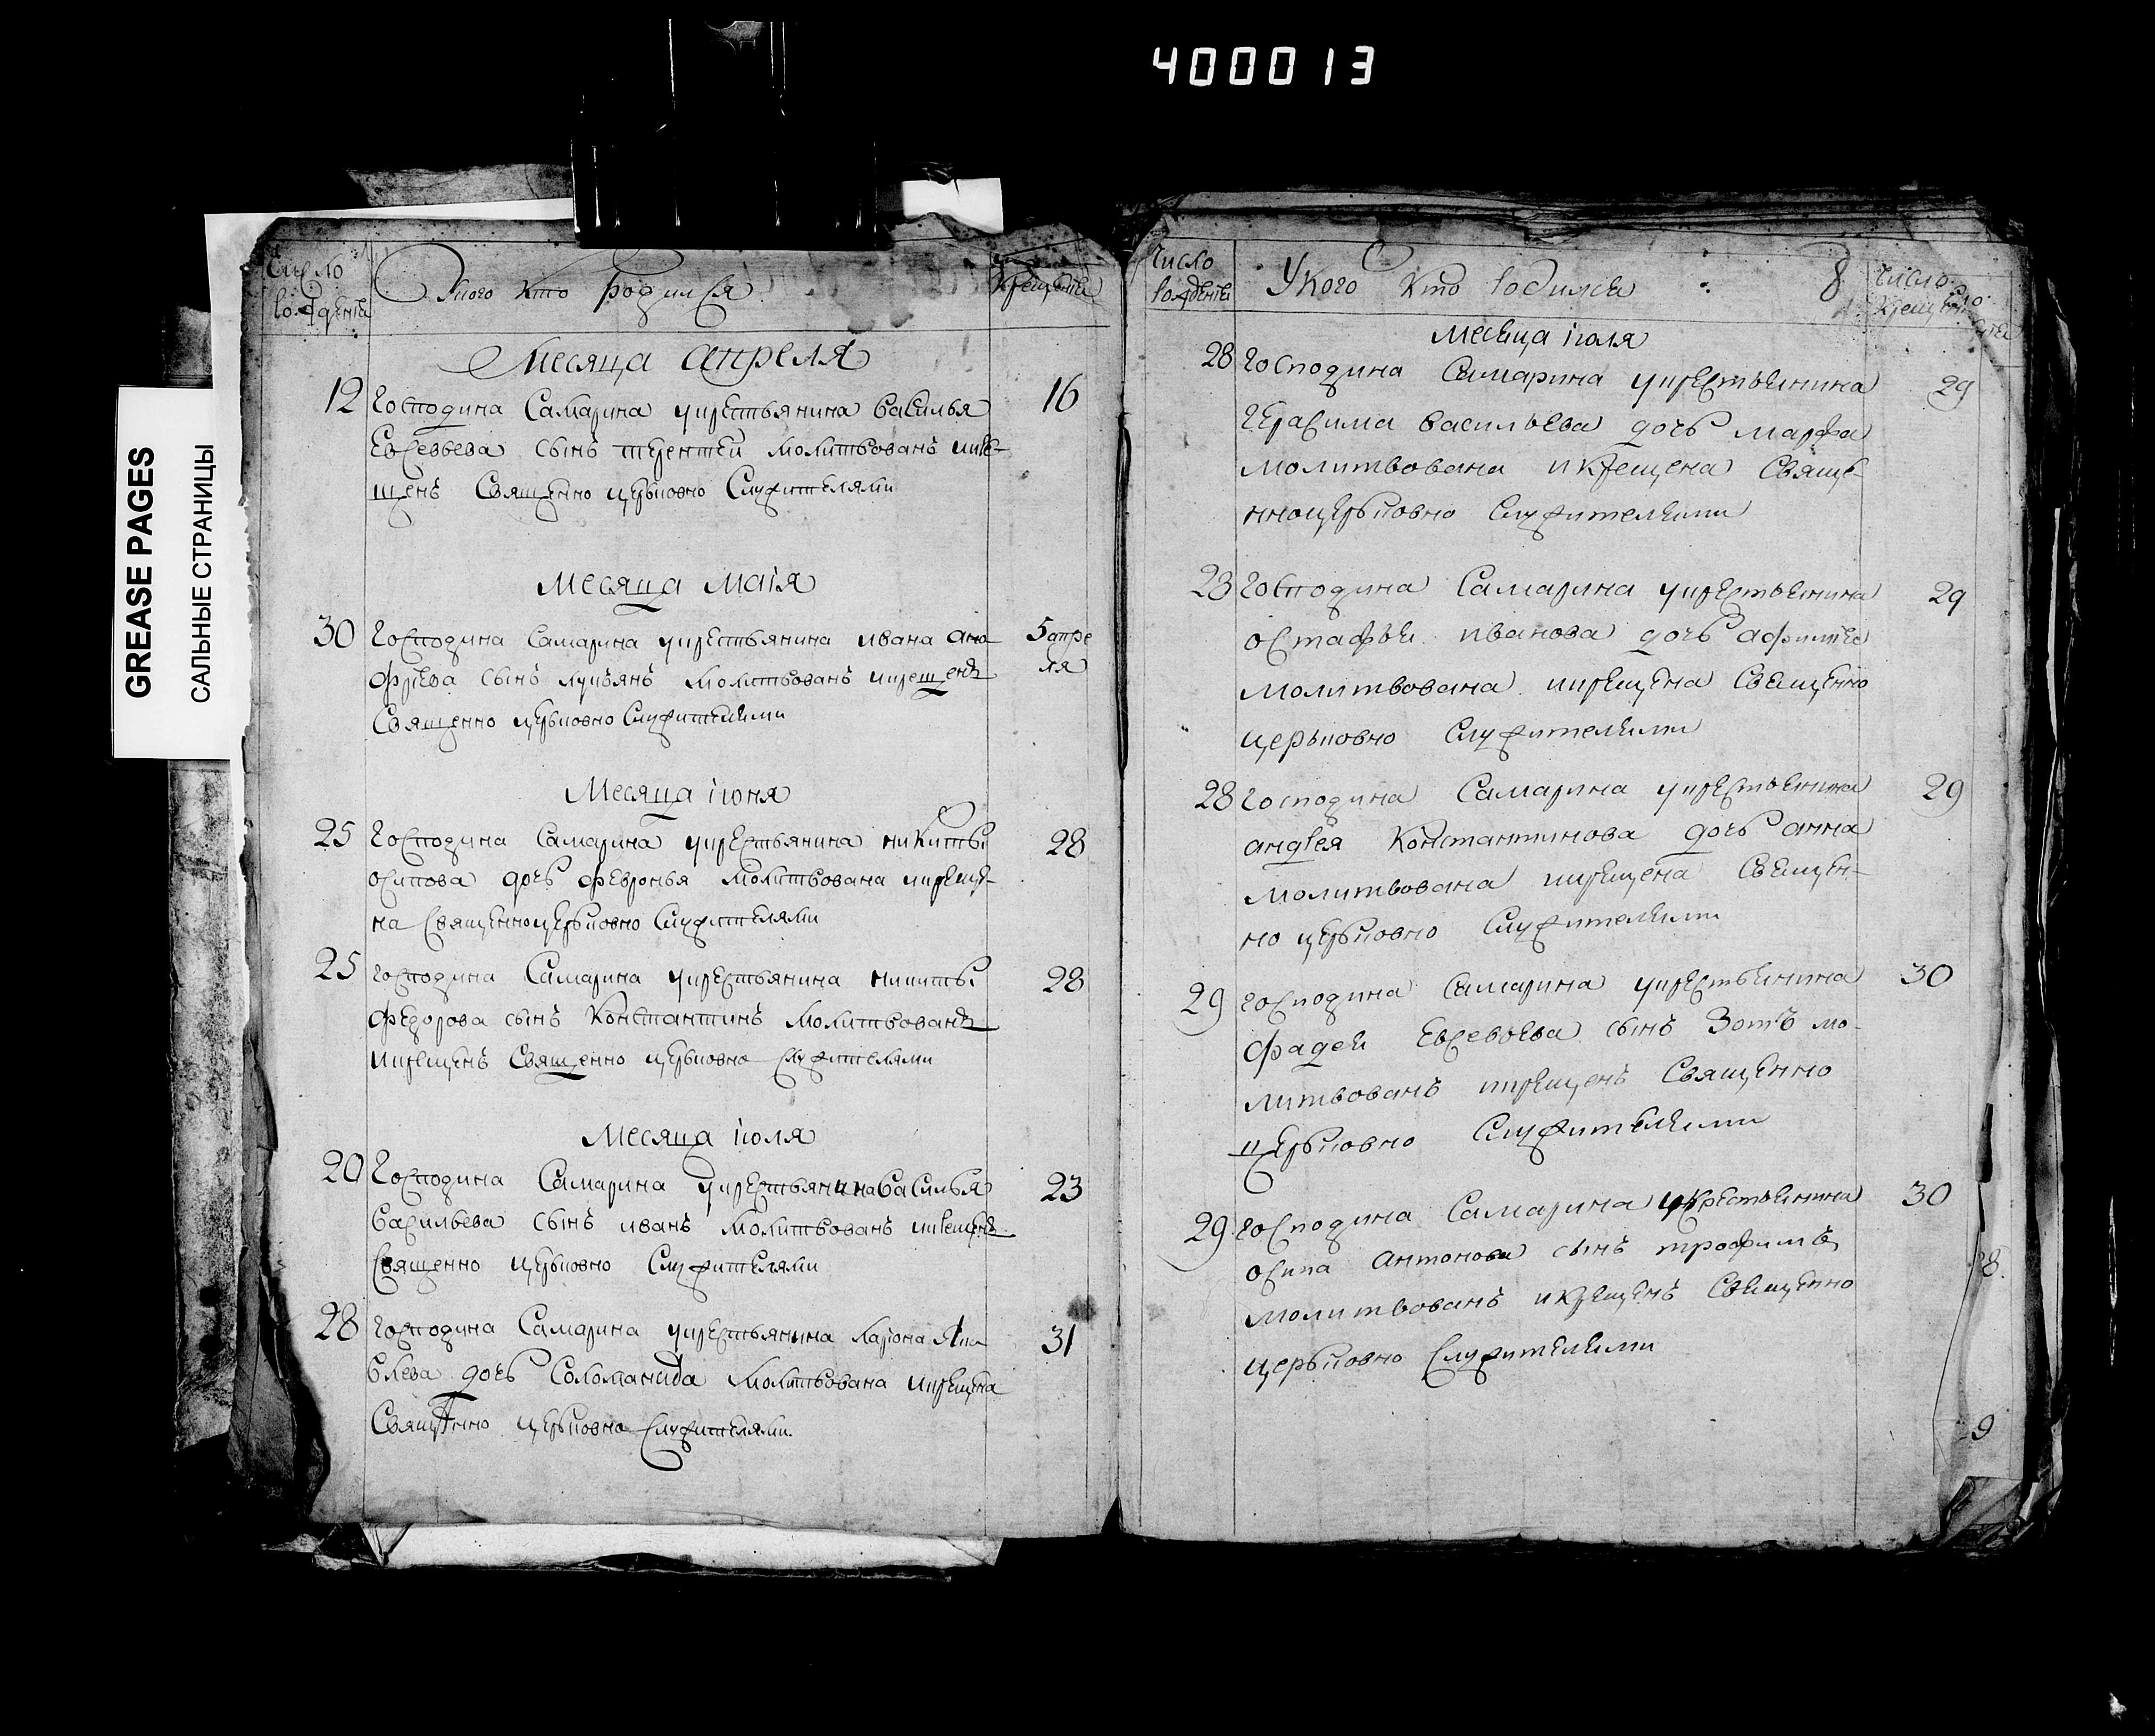 400013
GREASE PAGES
САЛЬНЫЕ СТРАНИЦЫ
Число
рождения
У кого кто родился
крещения
Месяца апреля
12 Господина Самарина укрестьянина Василья 16
Евсевьева сынъ терентей молитвованъ икре-
щенъ Священно церковно Служителями
Месяца маiя
30 Господина Самарина укрестьянина ивана ано 5 апре
фрева сынъ лукьянъ молитвованъ икрещенъ ля
Священно церковно Служителями
Месяца iюня
25 Господина Самарина укрестьянина никиты 28
осипова дочь февронья молитвована икреще-
на Священноцерковно Служителями
25 Господина Самарина укрестьянина никиты 28
федорова сынъ Константинъ молитвованъ
икрещенъ Священно церковно Служителями
Месяца iюля
20 Господина Самарина укрестьянина Василья 23
Васильева сынъ иванъ молитвованъ икрещенъ
Священно церковно Служителями
28 Господина Самарина укрестьянина 31
дочь Соломанида молитвована икрещена
Священно церковно Служителями
Число
рождения
У кого кто родился 8
число
крещения
месяца iюля
28 Господина Самарина укрестьянина 29
герасима васильева дочь марфа
молитвована икрещена Свяще-
нноцерковно Служителями
23 Господина Самарина укрестьянина 29
остафьи иванова дочь
молитвована икрещена Священно
церковно Служителями
28 Господина Самарина укрестьянина 29
андрея Константинова дочь анна
молитвована икрещена Священ-
но церковно Служителями
29 Господина Самарина укрестьянина 30
фадеи Евсевьева сынъ Зотъ мо-
литвованъ икрещенъ Священно
церковно Служителями
29 Господина Самарина укрестьянина 30
осипа антонова сынъ трофимъ
молитвованъ икрещенъ Священно
церковно Служителями
28.
9